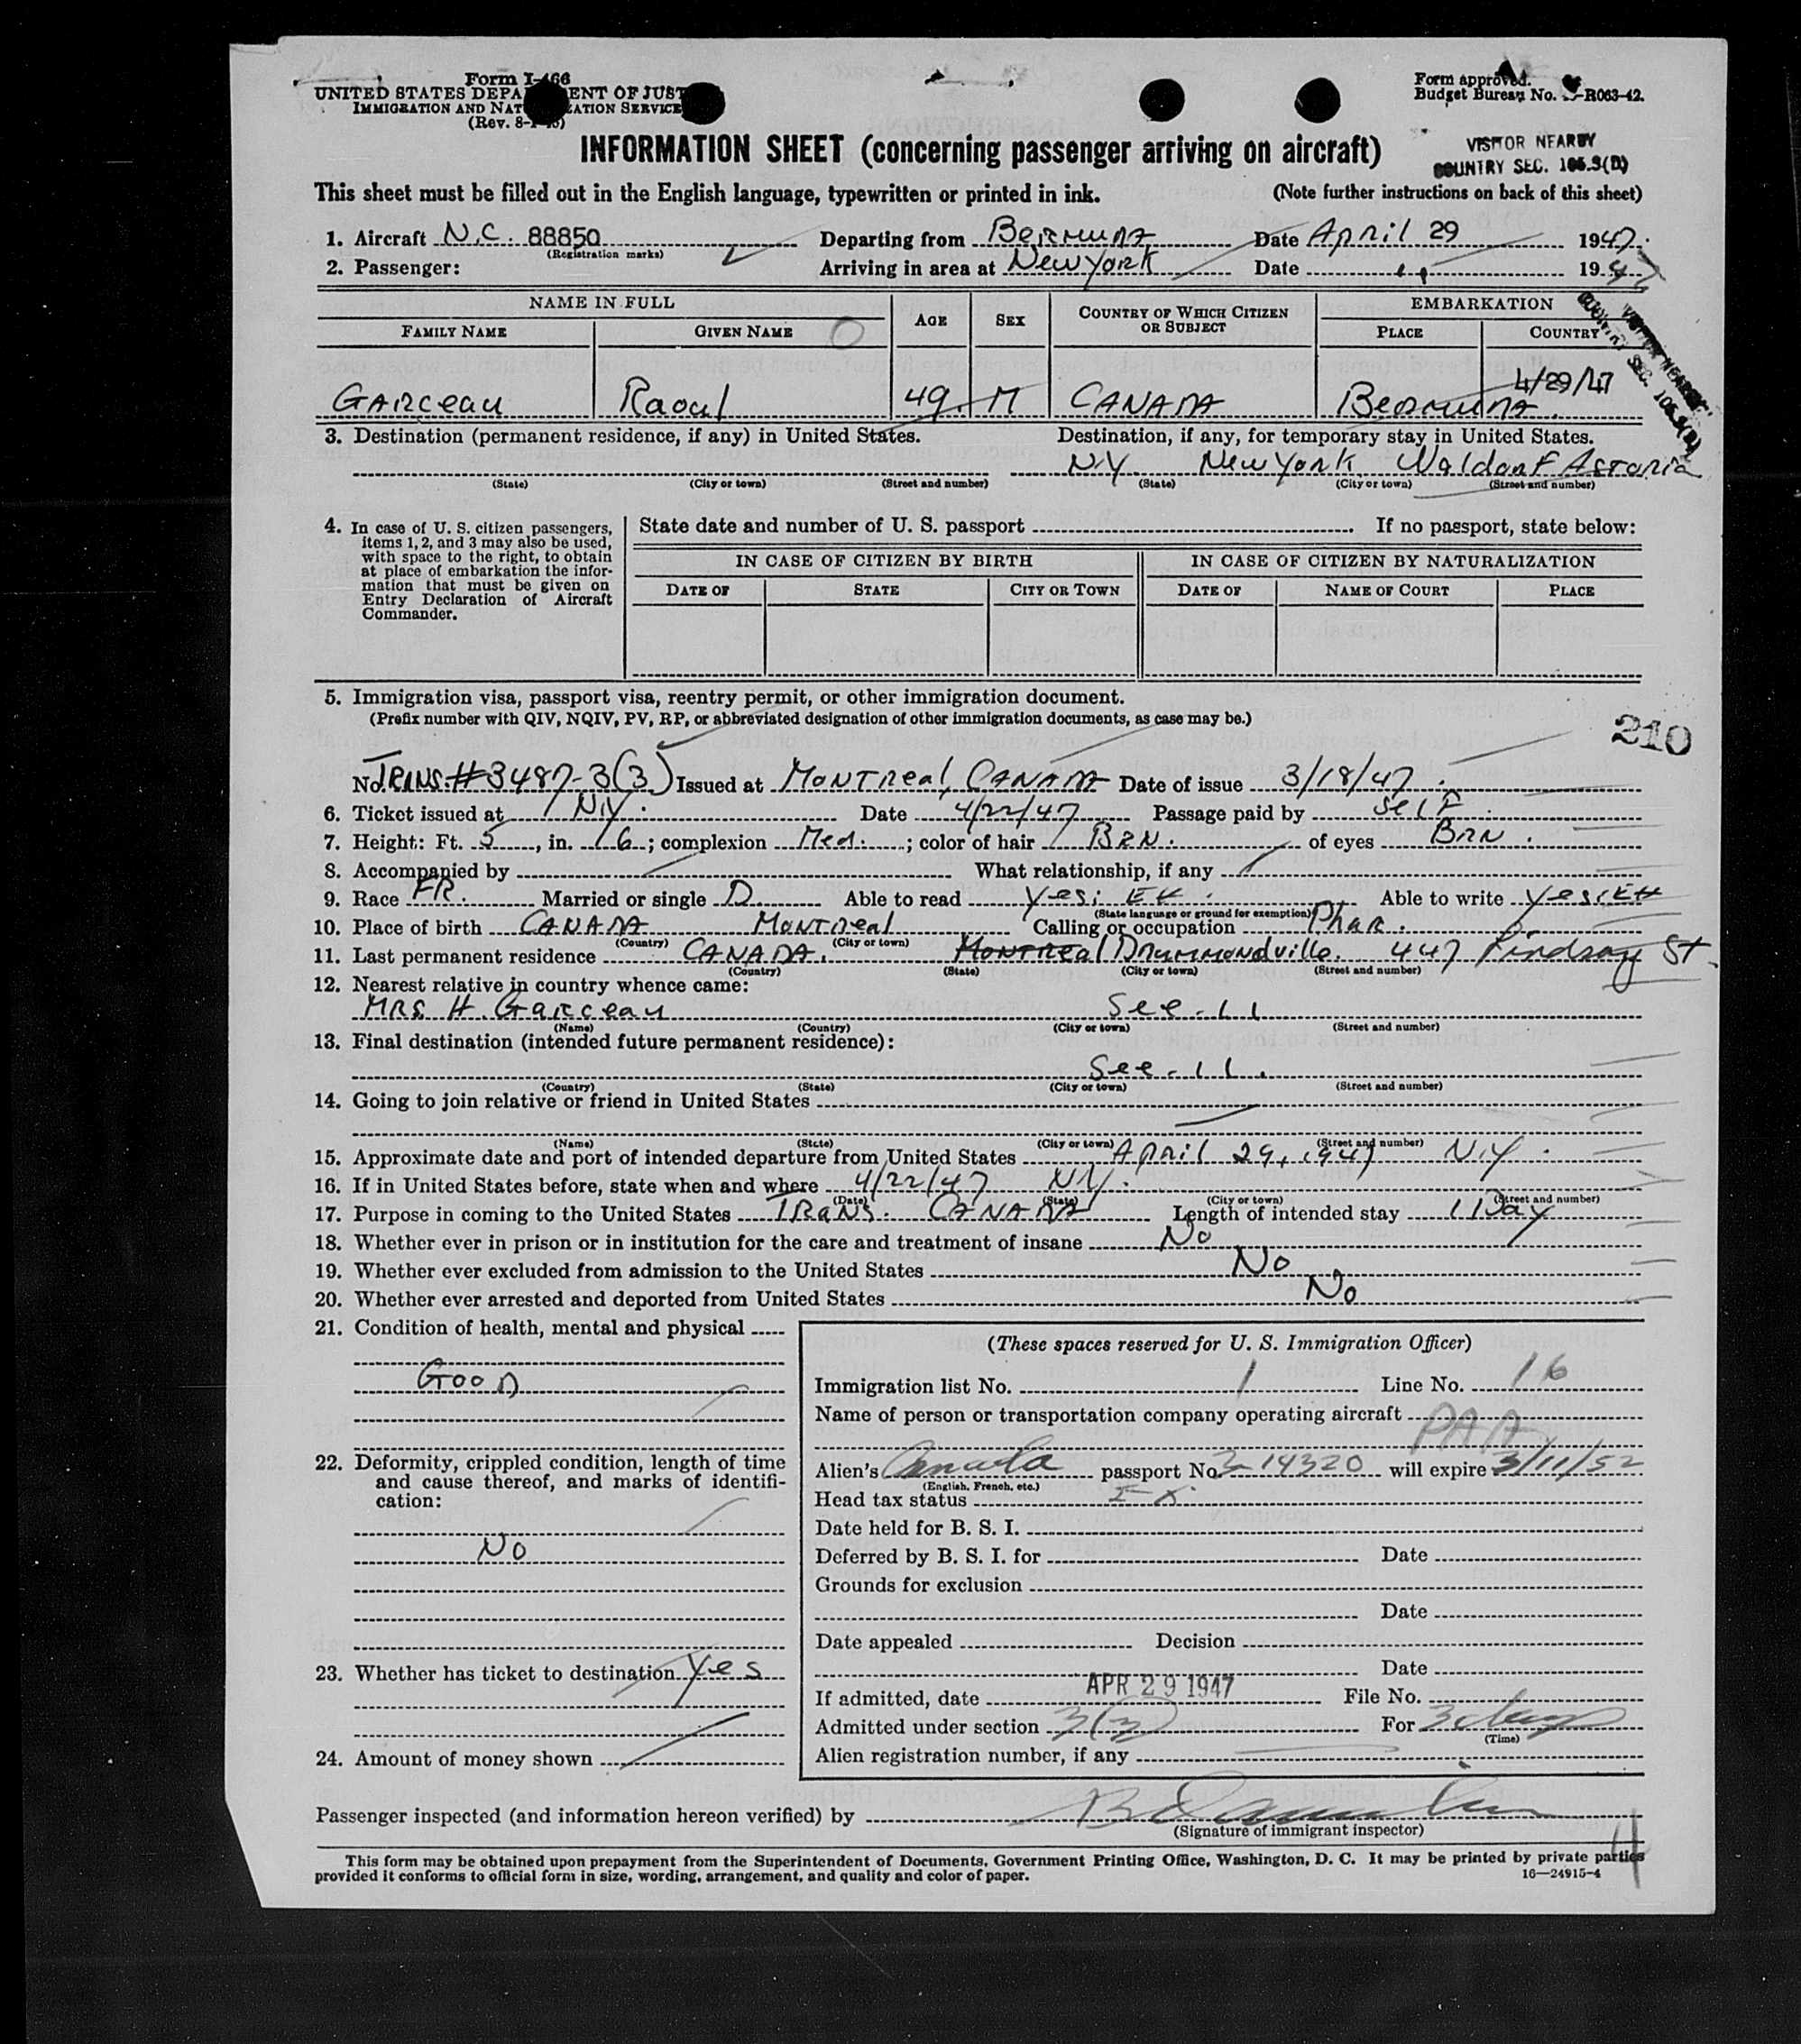 Form I-466
UNITED STATES DEPARTMENT OF JUSTICE
IMMIGRATION AND NATURALIZATION SERVICE
(Rev. 8-1-45)
Form approved.
Budget Bureau No. -R063-42.
INFORMATION SHEET (concerning passenger arriving on aircraft)
VISITOR NEARBY
COUNTRY SEC. 105.3(D)
This sheet must be filled out in the English language, typewritten or printed in ink. (Note further instructions on back of this sheet)
1. Aircraft N.C. 88850 Departing from Bermuda Date April 29 1947.
(Registration marks)
2. Passenger: Arriving in area at New York Date " 1947
NAME IN FULL AGE SEX COUNTRY OF WHICH CITIZEN OR SUBJECT EMBARKATION
FAMILY NAME GIVEN NAME PLACE COUNTRY
VISITOR NEARBY
COUNTRY SEC. 105.3(D)
4/29/47
Garceau Raoul 49. M CANADA Bermuda.
3. Destination (permanent residence, if any) in United States. Destination, if any, for temporary stay in United States.
N.Y. New York Waldorf Astoria
(State) (City or town) (Street and number) (State) (City or town) (Street and number)
4. In case of U. S. citizen passengers, items 1, 2, and 3 may also be used, with space to the right, to obtain at place of embarkation the information that must be given on Entry Declaration of Aircraft Commander.
State date and number of U. S. passport If no passport, state below:
IN CASE OF CITIZEN BY BIRTH IN CASE OF CITIZEN BY NATURALIZATION
DATE OF STATE CITY OR TOWN DATE OF NAME OF COURT PLACE
5. Immigration visa, passport visa, reentry permit, or other immigration document.
(Prefix number with QIV, NQIV, PV, RP, or abbreviated designation of other immigration documents, as case may be.)
210
No. TRINS. #3487-3(3) Issued at Montreal, CANADA Date of issue 3/18/47.
6. Ticket issued at N.Y. Date 4/22/47 Passage paid by Self.
7. Height: Ft. 5, in. 6; complexion Med.; color of hair BRN. of eyes BRN.
8. Accompanied by What relationship, if any
9. Race FR. Married or single D. Able to read Yes; Able to write Yes;
(State language or ground for exemption)
10. Place of birth CANADA Montreal Calling or occupation Phar.
(Country) (City or town)
11. Last permanent residence CANADA. Montreal Drummondville. 447 Lindsay St.
(Country) (State) (City or town) (Street and number)
12. Nearest relative in country whence came:
MRS H. Garceau See-11
(Name) (Country) (City or town) (Street and number)
13. Final destination (intended future permanent residence):
See-11.
(Country) (State) (City or town) (Street and number)
14. Going to join relative or friend in United States
(Name) (State) (City or town) (Street and number)
15. Approximate date and port of intended departure from United States April 29, 1947 N.Y.
16. If in United States before, state when and where 4/22/47 N.Y.
(Date) (State) (City or town) (Street and number)
17. Purpose in coming to the United States TRANS. CANADA Length of intended stay 1 Day
18. Whether ever in prison or in institution for the care and treatment of insane No
19. Whether ever excluded from admission to the United States No
20. Whether ever arrested and deported from United States No
21. Condition of health, mental and physical
Good
22. Deformity, crippled condition, length of time and cause thereof, and marks of identification:
No
23. Whether has ticket to destination Yes
24. Amount of money shown
(These spaces reserved for U. S. Immigration Officer)
Immigration list No. 1 Line No. 16
Name of person or transportation company operating aircraft PAA
Alien's Canada passport No. 3-14320 will expire 3/11/52
(English, French, etc.)
Head tax status EX.
Date held for B. S. I.
Deferred by B. S. I. for Date
Grounds for exclusion
Date
Date appealed Decision
Date
If admitted, date APR 29 1947 File No.
Admitted under section 3(3) For 3 days
(Time)
Alien registration number, if any
Passenger inspected (and information hereon verified) by
(Signature of immigrant inspector)
This form may be obtained upon prepayment from the Superintendent of Documents, Government Printing Office, Washington, D. C. It may be printed by private parties
provided it conforms to official form in size, wording, arrangement, and quality and color of paper. 16—24915-4